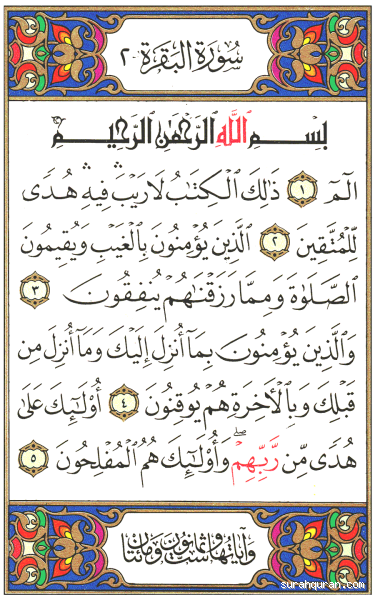 سُورَةُ البَقَرَةِ ٢
بِسْمِ اللَّهِ الرَّحْمَٰنِ الرَّحِيمِ
الٓمٓ ١ ذَٰلِكَ الْكِتَٰبُ لَا رَيْبَ ۛ فِيهِ ۛ هُدًى
لِّلْمُتَّقِينَ ٢ الَّذِينَ يُؤْمِنُونَ بِالْغَيْبِ وَيُقِيمُونَ
الصَّلَوٰةَ وَمِمَّا رَزَقْنَٰهُمْ يُنفِقُونَ ٣
وَالَّذِينَ يُؤْمِنُونَ بِمَآ أُنزِلَ إِلَيْكَ وَمَآ أُنزِلَ مِن
قَبْلِكَ وَبِالْأَخِرَةِ هُمْ يُوقِنُونَ ٤ أُوْلَٰٓئِكَ عَلَىٰ
هُدًى مِّن رَّبِّهِمْ ۖ وَأُوْلَٰٓئِكَ هُمُ الْمُفْلِحُونَ ٥
وَآيَاتُهَا سِتٌّ وَثَمَانُونَ وَمِائَتَانِ
surahquran.com